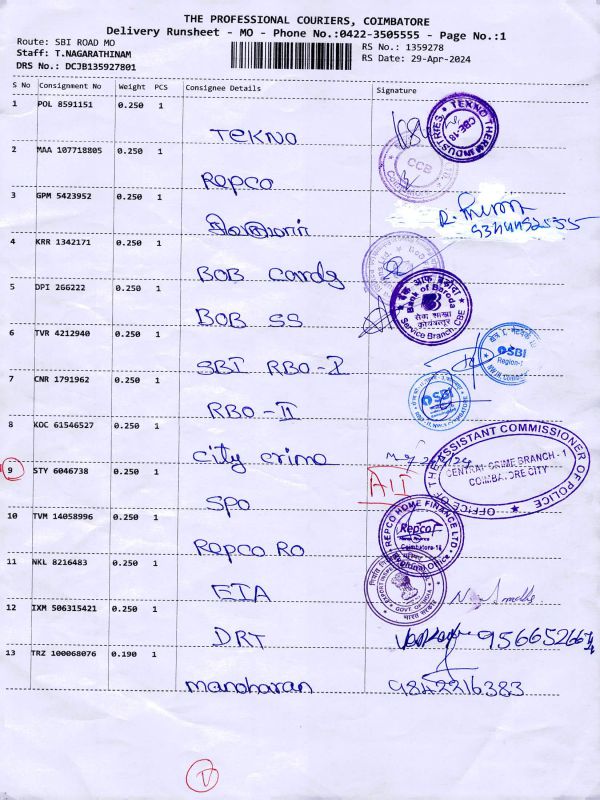 THE PROFESSIONAL COURIERS, COIMBATORE
Delivery Runsheet - MO - Phone No.:0422-3505555 - Page No.:1
Route: SBI ROAD MO
Staff: T.NAGARATHINAM
DRS No.: DCJB135927801
RS No.: 1359278
RS Date: 29-Apr-2024
S No Consignment No Weight PCS Consignee Details Signature
1 POL 8591151 0.250 1
TEKNO
TEKNO THERM INDUSTRIES CBE-18
2 MAA 107718805 0.250 1
Repco
CCB
3 GPM 5423952 0.250 1
4 KRR 1342171 0.250 1
BOB Cards
5 DPI 266222 0.250 1
BOB SS
बैंक ऑफ बड़ौदा
Bank of Baroda
सेवा शाखा
कोयंबत्तूर
Service Branch, CBE
6 TVR 4212940 0.250 1
SBI RBO-I
SBI
Region-1
7 CNR 1791962 0.250 1
RBO-II
SBI
8 KOC 61546527 0.250 1
City crime
OFFICE OF THE ASSISTANT COMMISSIONER OF POLICE
CENTRAL CRIME BRANCH - 1
COIMBATORE CITY
9 STY 6046738 0.250 1
SPO
AII
10 TVM 14058996 0.250 1
Repco RO
REPCO HOME FINANCE LTD.
Repco
Coimbatore-18
Regional Office
11 NKL 8216483 0.250 1
EIA
GOVT OF INDIA
भारत सरकार
12 IXM 506315421 0.250 1
DRT
13 TRZ 100068076 0.190 1
manoharan
9842216383